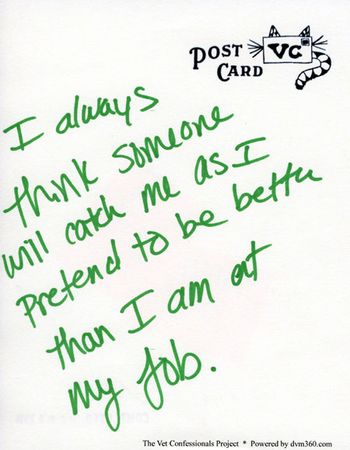 POST
CARD
VC
I always
think someone
will catch me as I
Pretend to be better
than I am at
my job.
The Vet Confessionals Project * Powered by dvm360.com